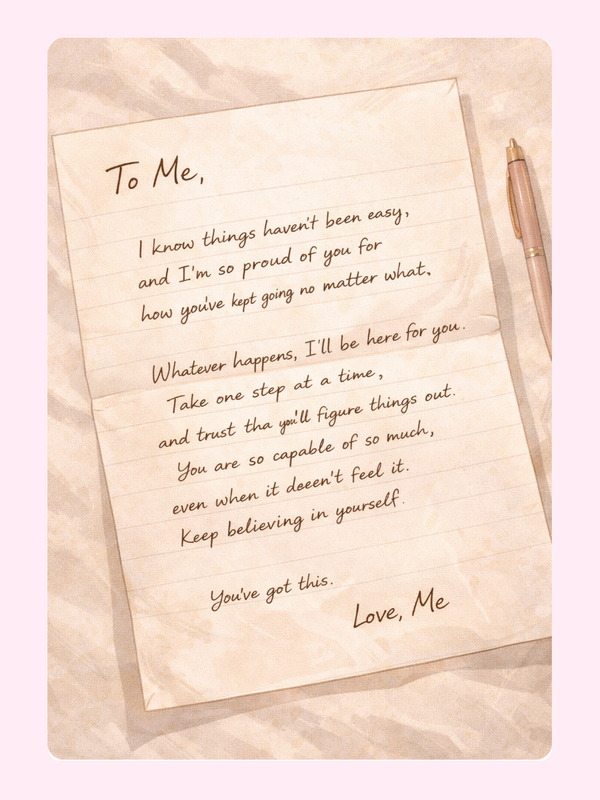 To Me,
I know things haven't been easy,
and I'm so proud of you for
how you've kept going no matter what,
Whatever happens, I'll be here for you.
Take one step at a time,
and trust tha you'll figure things out.
You are so capable of so much,
even when it deeen't feel it.
Keep believing in yourself.
You've got this.
Love, Me